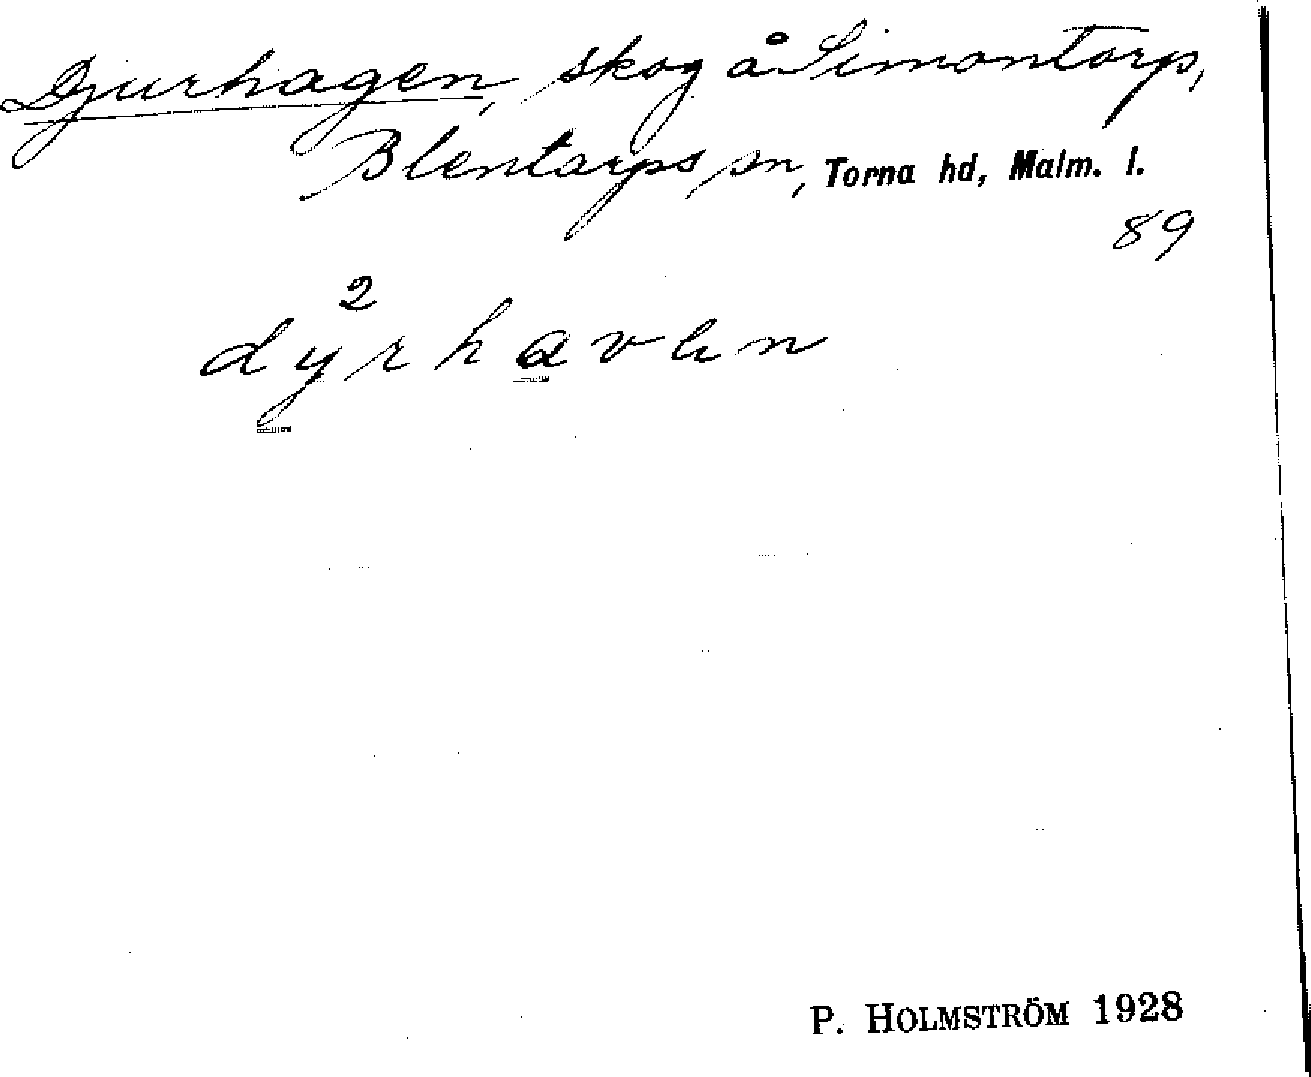 Djurhagen, skog å Simontorp,
Blentarps sn, Torna hd, Malm. l.
89
2
dyrhaven
P. HOLMSTRÖM 1928